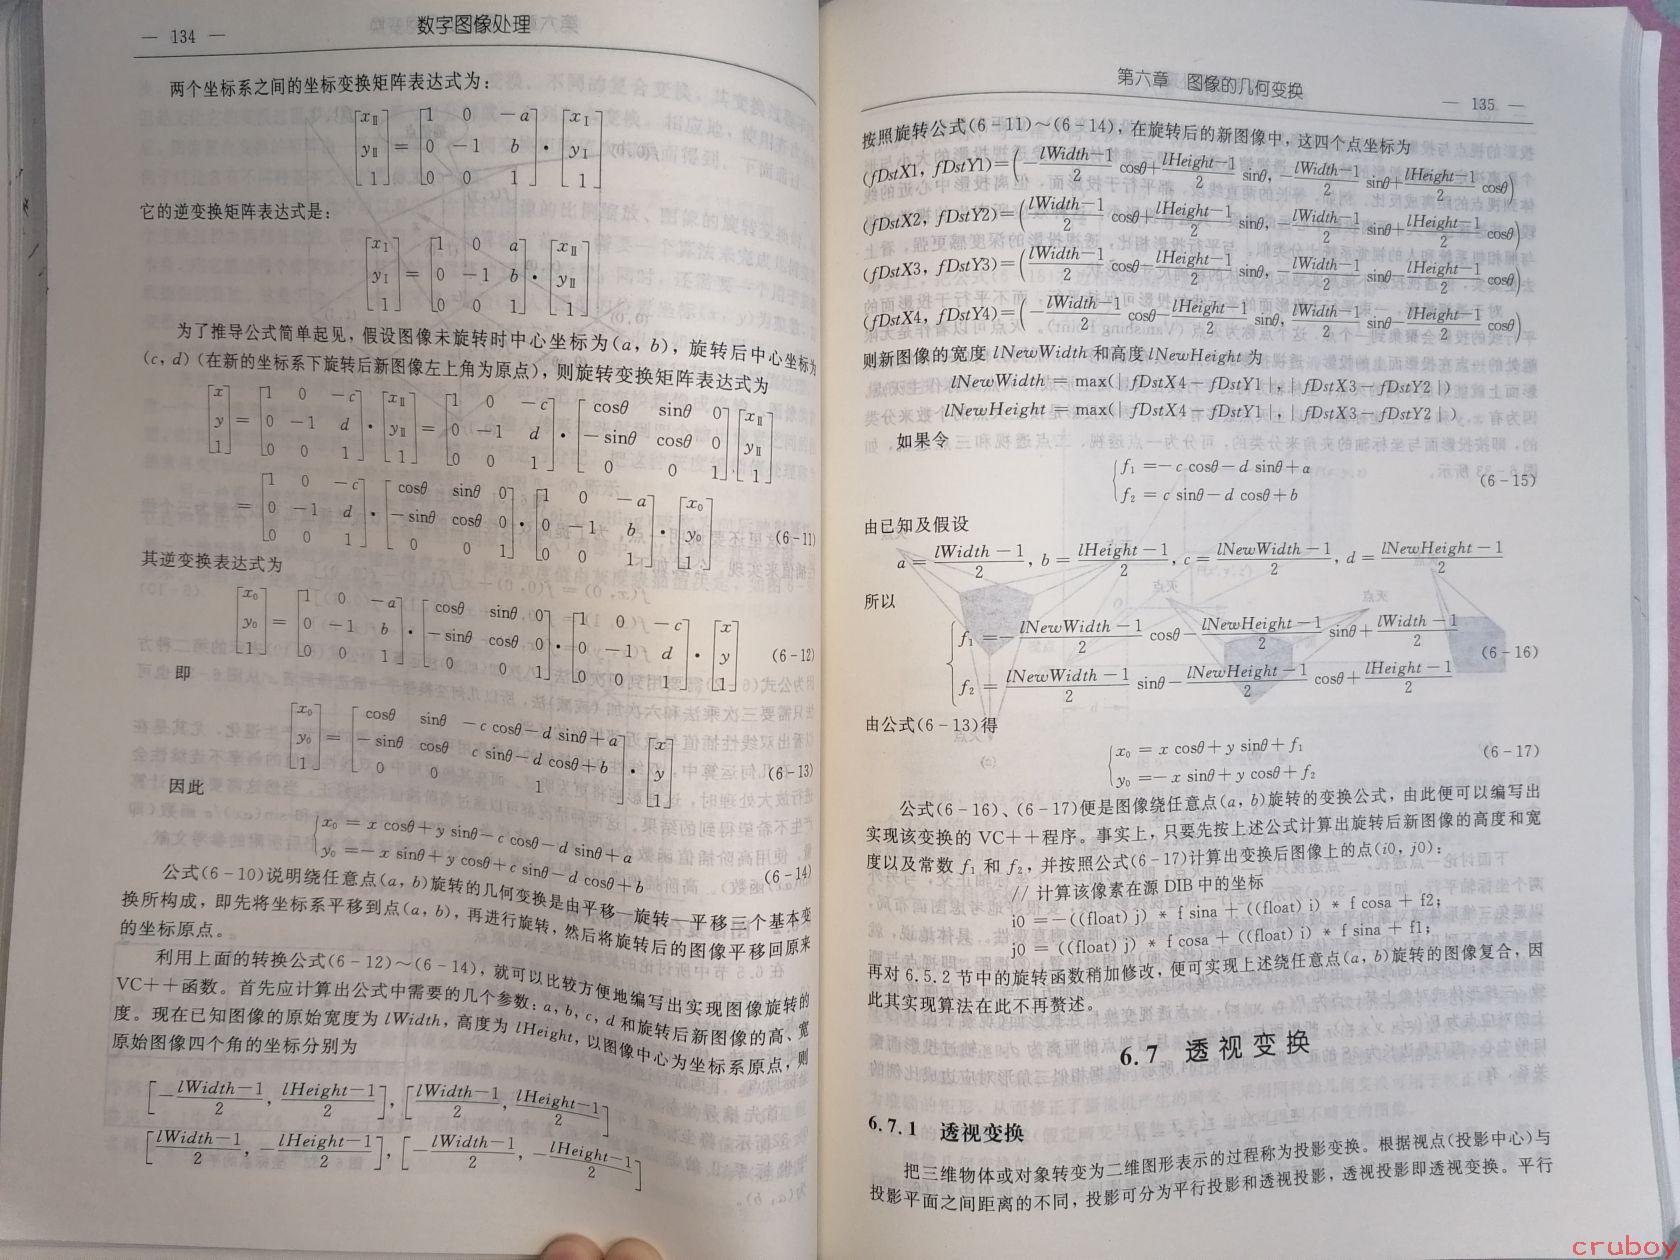 — 134 —
数字图像处理
两个坐标系之间的坐标变换矩阵表达式为：
[xⅡ yⅡ 1] = [1 0 -a; 0 -1 b; 0 0 1] · [xⅠ yⅠ 1]
它的逆变换矩阵表达式是：
[xⅠ yⅠ 1] = [1 0 a; 0 -1 b; 0 0 1] · [xⅡ yⅡ 1]
为了推导公式简单起见，假设图像未旋转时中心坐标为(a, b)，旋转后中心坐标为
(c, d)(在新的坐标系下旋转后新图像左上角为原点)，则旋转变换矩阵表达式为
[x y 1] = [1 0 -c; 0 -1 d; 0 0 1] · [xⅡ yⅡ 1] = [1 0 -c; 0 -1 d; 0 0 1] · [cosθ sinθ 0; -sinθ cosθ 0; 0 0 1] [xⅡ yⅡ 1]
= [1 0 -c; 0 -1 d; 0 0 1] · [cosθ sinθ 0; -sinθ cosθ 0; 0 0 1] · [1 0 -a; 0 -1 b; 0 0 1] · [x₀ y₀ 1] (6-11)
其逆变换表达式为
[x₀ y₀ 1] = [1 0 -a; 0 -1 b; 0 0 1] · [cosθ sinθ 0; -sinθ cosθ 0; 0 0 1] · [1 0 -c; 0 -1 d; 0 0 1] · [x y 1] (6-12)
即
[x₀ y₀ 1] = [cosθ sinθ -c cosθ-d sinθ+a; -sinθ cosθ c sinθ-d cosθ+b; 0 0 1] · [x y 1] (6-13)
因此
x₀ = x cosθ+y sinθ-c cosθ-d sinθ+a
y₀ =-x sinθ+y cosθ+c sinθ-d cosθ+b (6-14)
公式(6-10)说明绕任意点(a, b)旋转的几何变换是由平移—旋转—平移三个基本变
换所构成，即先将坐标系平移到点(a, b)，再进行旋转，然后将旋转后的图像平移回原来
的坐标原点。
利用上面的转换公式(6-12)～(6-14)，就可以比较方便地编写出实现图像旋转的
VC++函数。首先应计算出公式中需要的几个参数：a, b, c, d 和旋转后新图像的高、宽
度。现在已知图像的原始宽度为 lWidth，高度为 lHeight，以图像中心为坐标系原点，则
原始图像四个角的坐标分别为
[-(lWidth-1)/2, (lHeight-1)/2], [(lWidth-1)/2, (lHeight-1)/2]
[(lWidth-1)/2, -(lHeight-1)/2], [-(lWidth-1)/2, -(lHeight-1)/2]
第六章 图像的几何变换
— 135 —
按照旋转公式(6-11)～(6-14)，在旋转后的新图像中，这四个点坐标为
(fDstX1, fDstY1)=(-(lWidth-1)/2 cosθ+(lHeight-1)/2 sinθ, -(lWidth-1)/2 sinθ+(lHeight-1)/2 cosθ)
(fDstX2, fDstY2)=((lWidth-1)/2 cosθ+(lHeight-1)/2 sinθ, -(lWidth-1)/2 sinθ+(lHeight-1)/2 cosθ)
(fDstX3, fDstY3)=((lWidth-1)/2 cosθ-(lHeight-1)/2 sinθ, -(lWidth-1)/2 sinθ-(lHeight-1)/2 cosθ)
(fDstX4, fDstY4)=(-(lWidth-1)/2 cosθ-(lHeight-1)/2 sinθ, (lWidth-1)/2 sinθ-(lHeight-1)/2 cosθ)
则新图像的宽度 lNewWidth 和高度 lNewHeight 为
lNewWidth = max(|fDstX4-fDstY1|, |fDstX3-fDstY2|)
lNewHeight = max(|fDstX4-fDstY1|, |fDstX3-fDstY2|)
如果令
f₁ =-c cosθ-d sinθ+a
f₂ = c sinθ-d cosθ+b (6-15)
由已知及假设
a = (lWidth-1)/2, b = (lHeight-1)/2, c = (lNewWidth-1)/2, d = (lNewHeight-1)/2
所以
f₁ =-(lNewWidth-1)/2 cosθ-(lNewHeight-1)/2 sinθ+(lWidth-1)/2
f₂ = (lNewWidth-1)/2 sinθ-(lNewHeight-1)/2 cosθ+(lHeight-1)/2 (6-16)
由公式(6-13)得
x₀ = x cosθ+y sinθ+f₁
y₀ =-x sinθ+y cosθ+f₂ (6-17)
公式(6-16)、(6-17)便是图像绕任意点(a, b)旋转的变换公式，由此便可以编写出
实现该变换的 VC++程序。事实上，只要先按上述公式计算出旋转后新图像的高度和宽
度以及常数 f₁ 和 f₂，并按照公式(6-17)计算出变换后图像上的点(i0, j0)：
// 计算该像素在源 DIB 中的坐标
i0 =-((float) j) * f sina + ((float) i) * f cosa + f2;
j0 = ((float) j) * f cosa + ((float) i) * f sina + f1;
再对 6.5.2 节中的旋转函数稍加修改，便可实现上述绕任意点(a, b)旋转的图像复合，因
此其实现算法在此不再赘述。
6.7 透视变换
6.7.1 透视变换
把三维物体或对象转变为二维图形表示的过程称为投影变换。根据视点(投影中心)与
投影平面之间距离的不同，投影可分为平行投影和透视投影，透视投影即透视变换。平行
cruboy